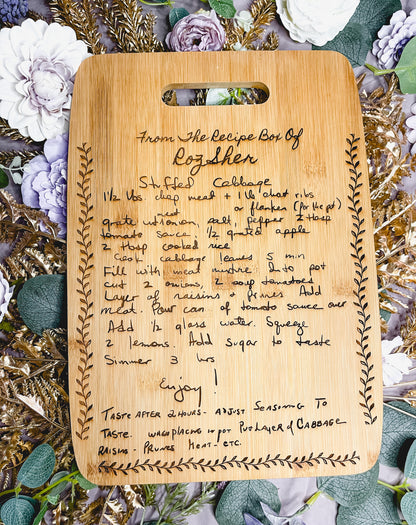 From The Recipe Box Of
Roz Sher
Stuffed Cabbage
1 1/2 lbs. chop meat + 1 lb short ribs
or flanken (for the pot)
grate into meat onion, salt, pepper 2 tbsp
tomato sauce, 1/2 grated apple
2 tbsp cooked rice
Cook cabbage leaves 5 min
Fill with meat mixture. Into pot
cut 2 onions, 2 soup tomatoes
Layer of raisins + prunes Add
meat. Pour can of tomato sauce over
Add 1/2 glass water. Squeeze
2 lemons. Add sugar to taste
Simmer 3 hrs
Enjoy!
TASTE AFTER 2 HOURS - ADJUST SEASONING TO
TASTE. WHEN PLACING IN POT PUT LAYER of CABBAGE
RAISINS - PRUNES MEAT, ETC.